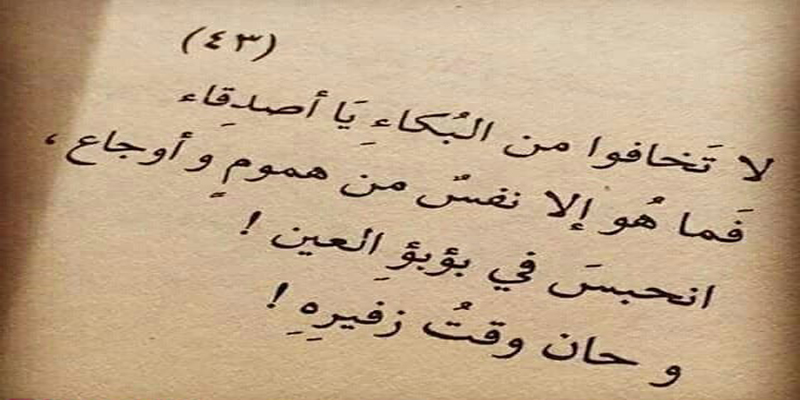 (٤٣)
لا تَخافوا من البُكاءِ يَا أصدقِاء
فَما هُو إلا نفسٌ من همومٍ و أوجاع ،
انحبسَ في بؤبؤِ العين !
و حان وقتُ زفيرِهِ !